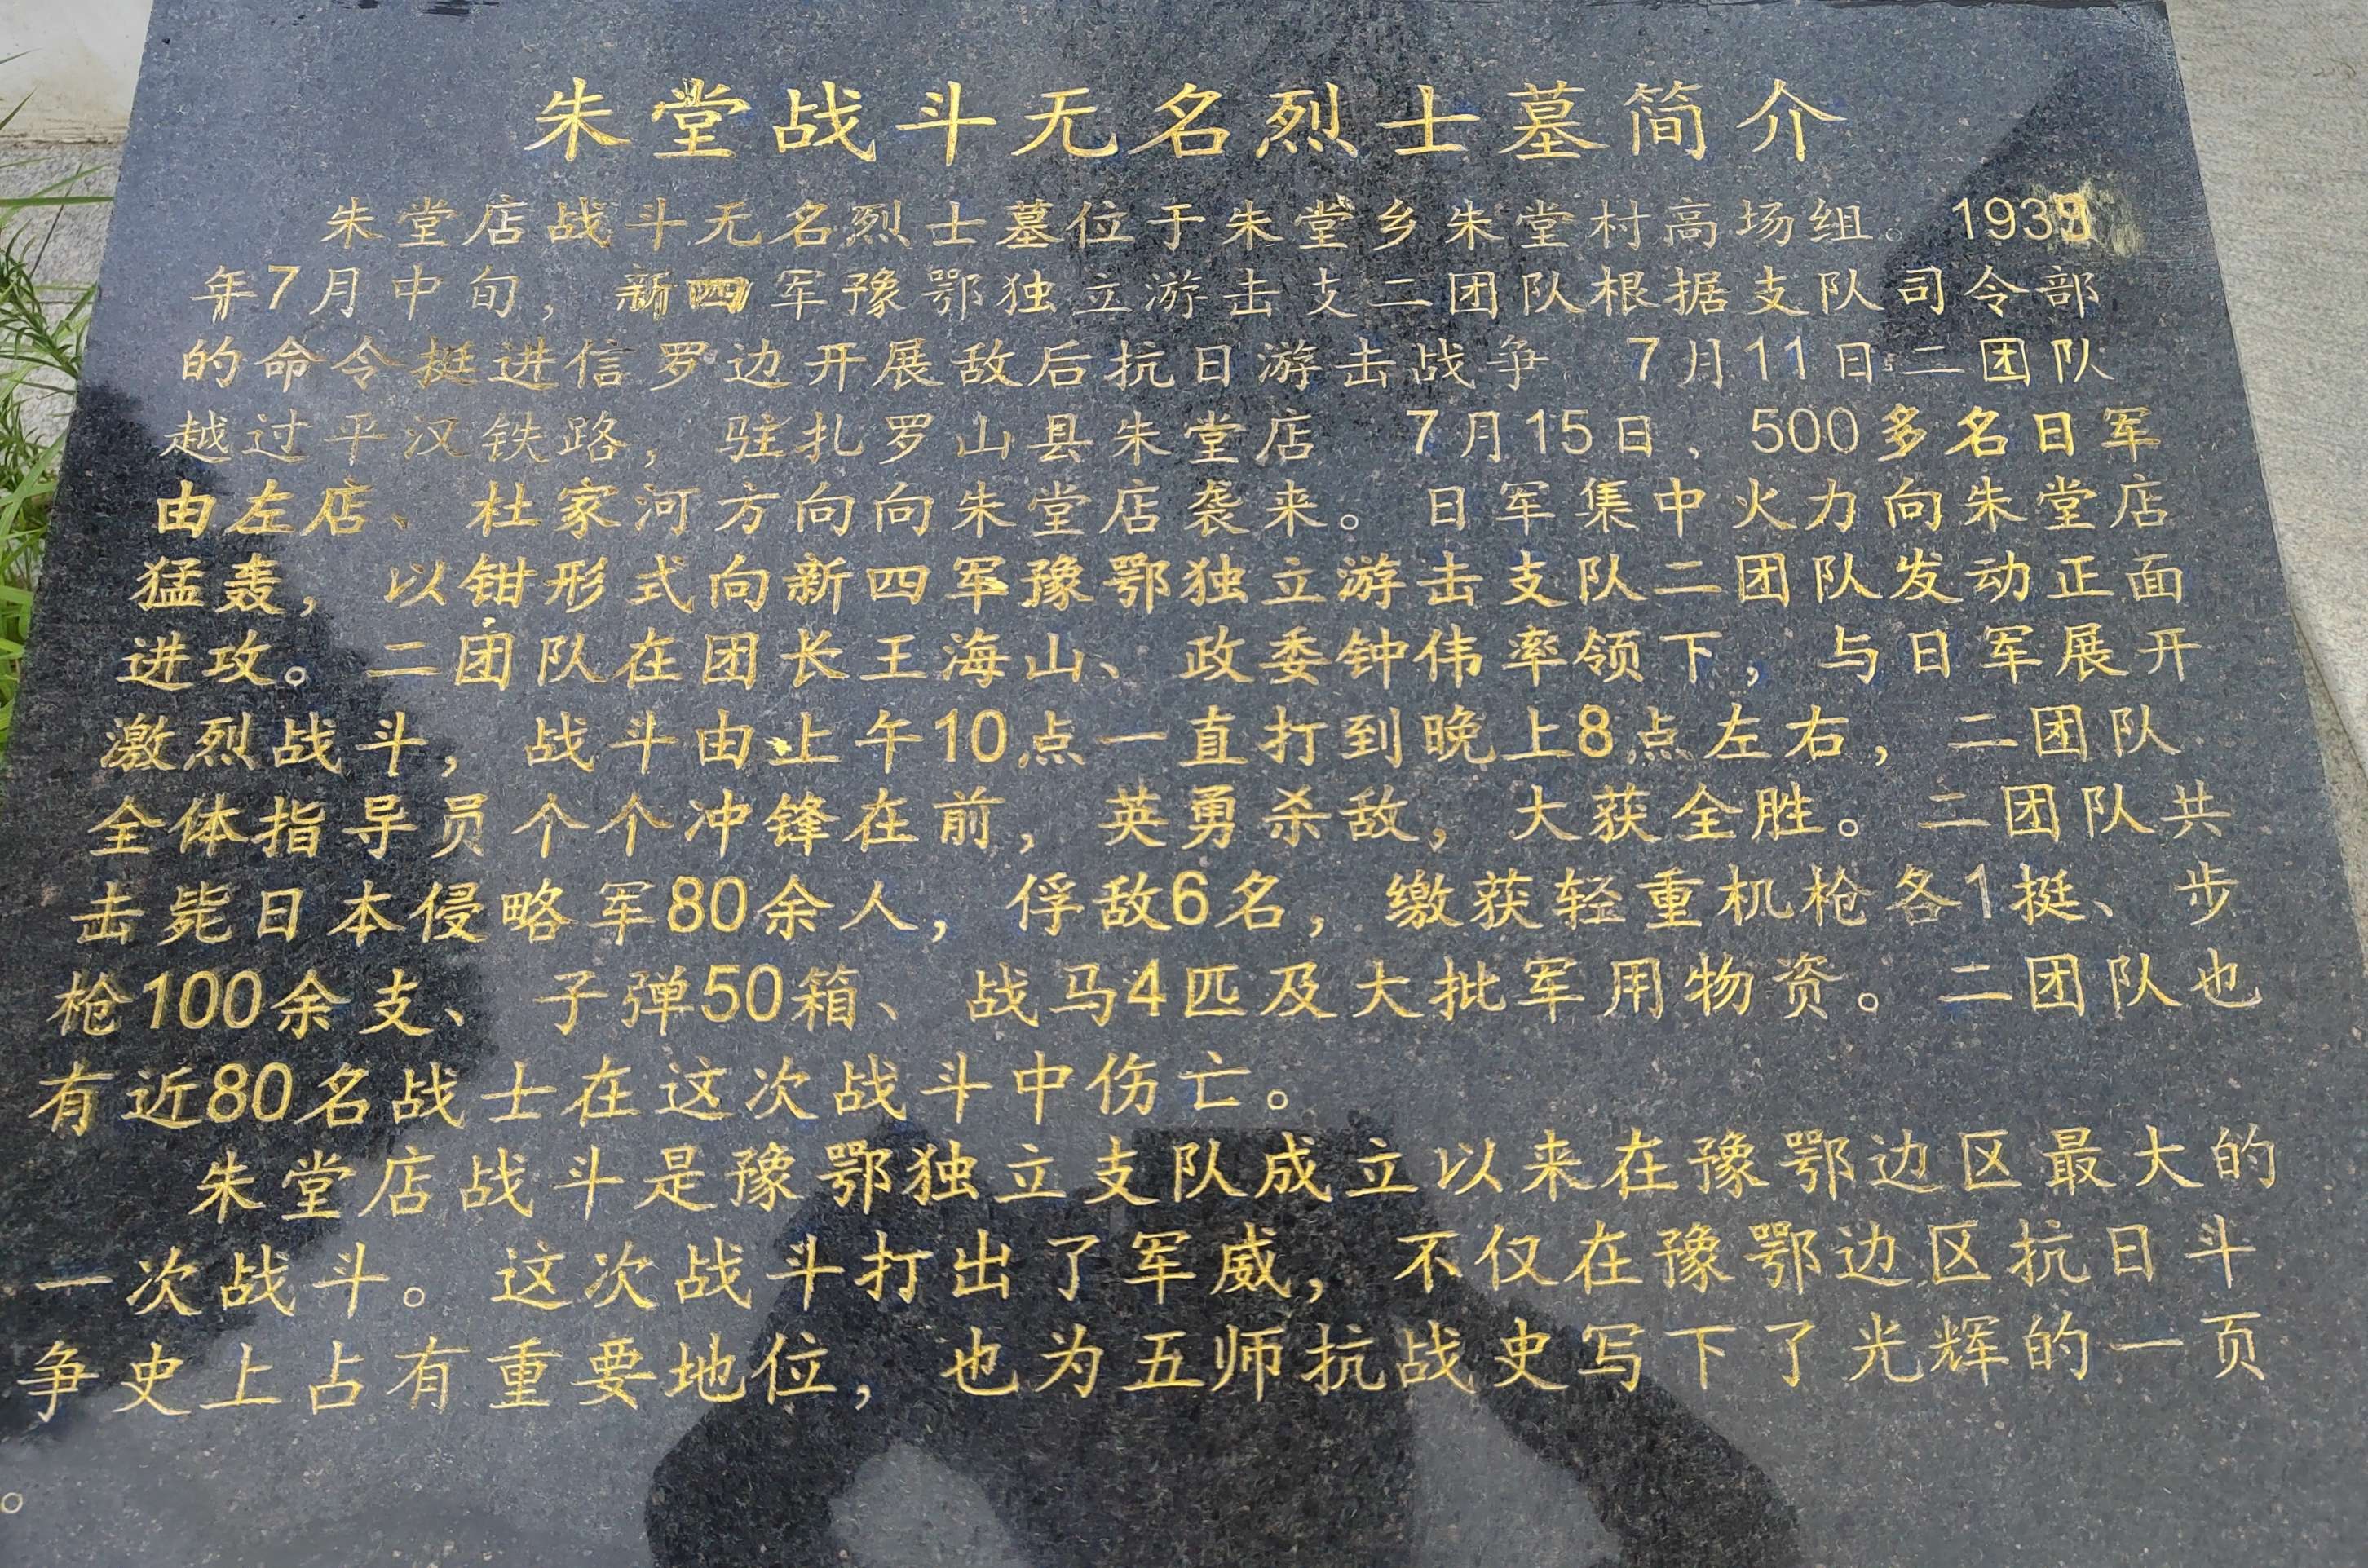 朱堂战斗无名烈士墓简介
朱堂店战斗无名烈士墓位于朱堂乡朱堂村高场组。1939
年7月中旬，新四军豫鄂独立游击支二团队根据支队司令部
的命令挺进信罗边开展敌后抗日游击战争 7月11日二团队
越过平汉铁路，驻扎罗山县朱堂店 7月15日，500多名日军
由左店、杜家河方向向朱堂店袭来。日军集中火力向朱堂店
猛轰，以钳形式向新四军豫鄂独立游击支队二团队发动正面
进攻。二团队在团长王海山、政委钟伟率领下，与日军展开
激烈战斗，战斗由上午10点一直打到晚上8点左右，二团队
全体指导员个个冲锋在前，英勇杀敌，大获全胜。二团队共
击毙日本侵略军80余人，俘敌6名，缴获轻重机枪各1挺、步
枪100余支、子弹50箱、战马4匹及大批军用物资。二团队也
有近80名战士在这次战斗中伤亡。
朱堂店战斗是豫鄂独立支队成立以来在豫鄂边区最大的
一次战斗。这次战斗打出了军威，不仅在豫鄂边区抗日斗
争史上占有重要地位，也为五师抗战史写下了光辉的一页
。